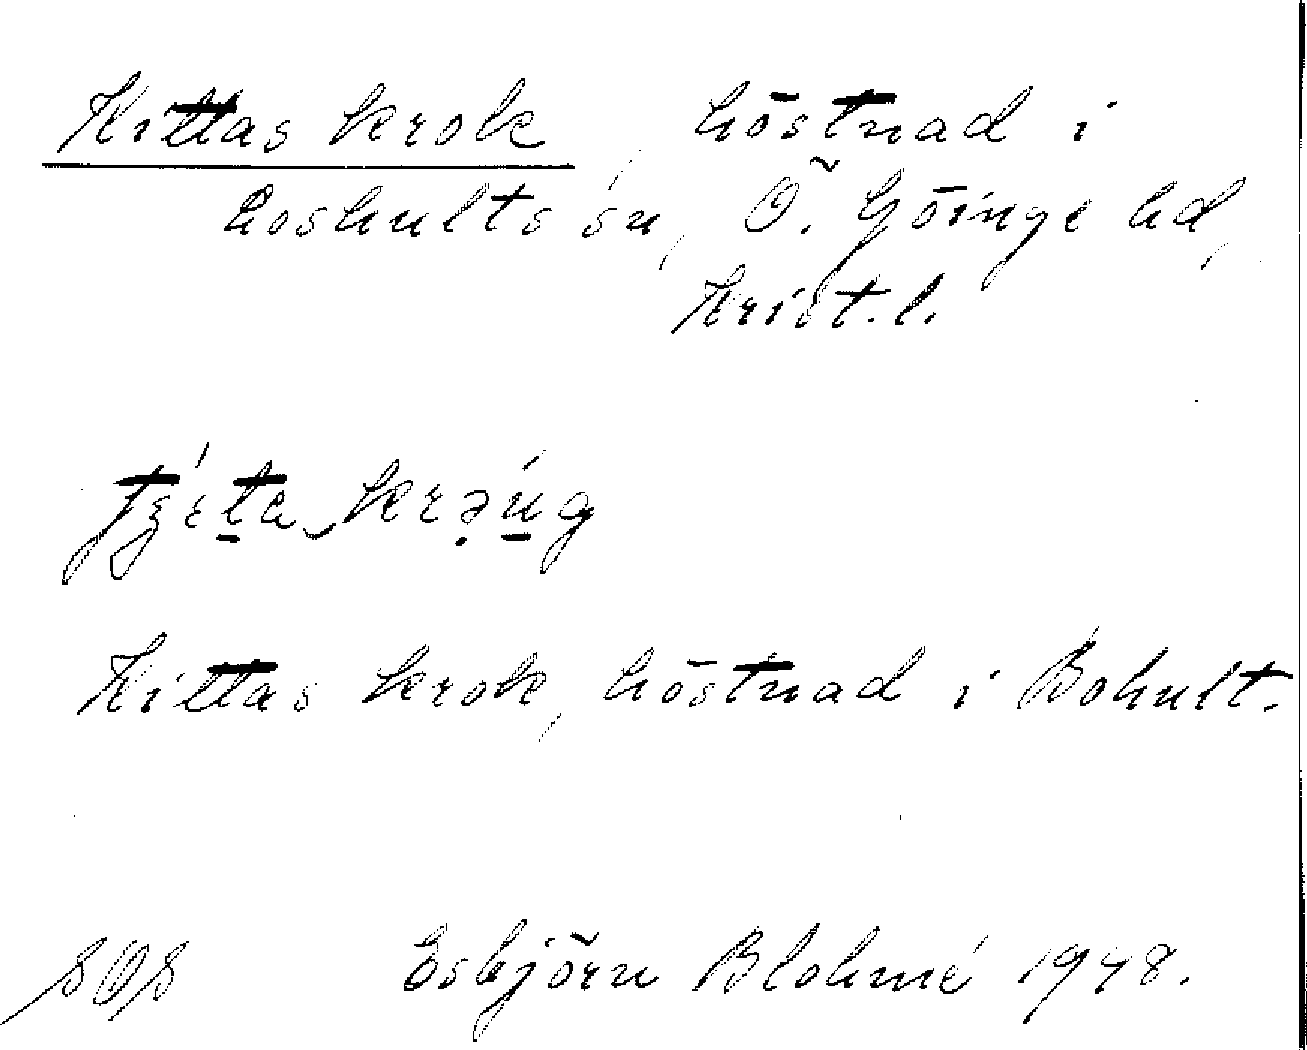 Kittas krok, höstnad i
Loshults sn, Ö. Göinge hd,
Krist. l.
Kittas krok, höstnad i Bohult.
Esbjörn Blohmé 1948.